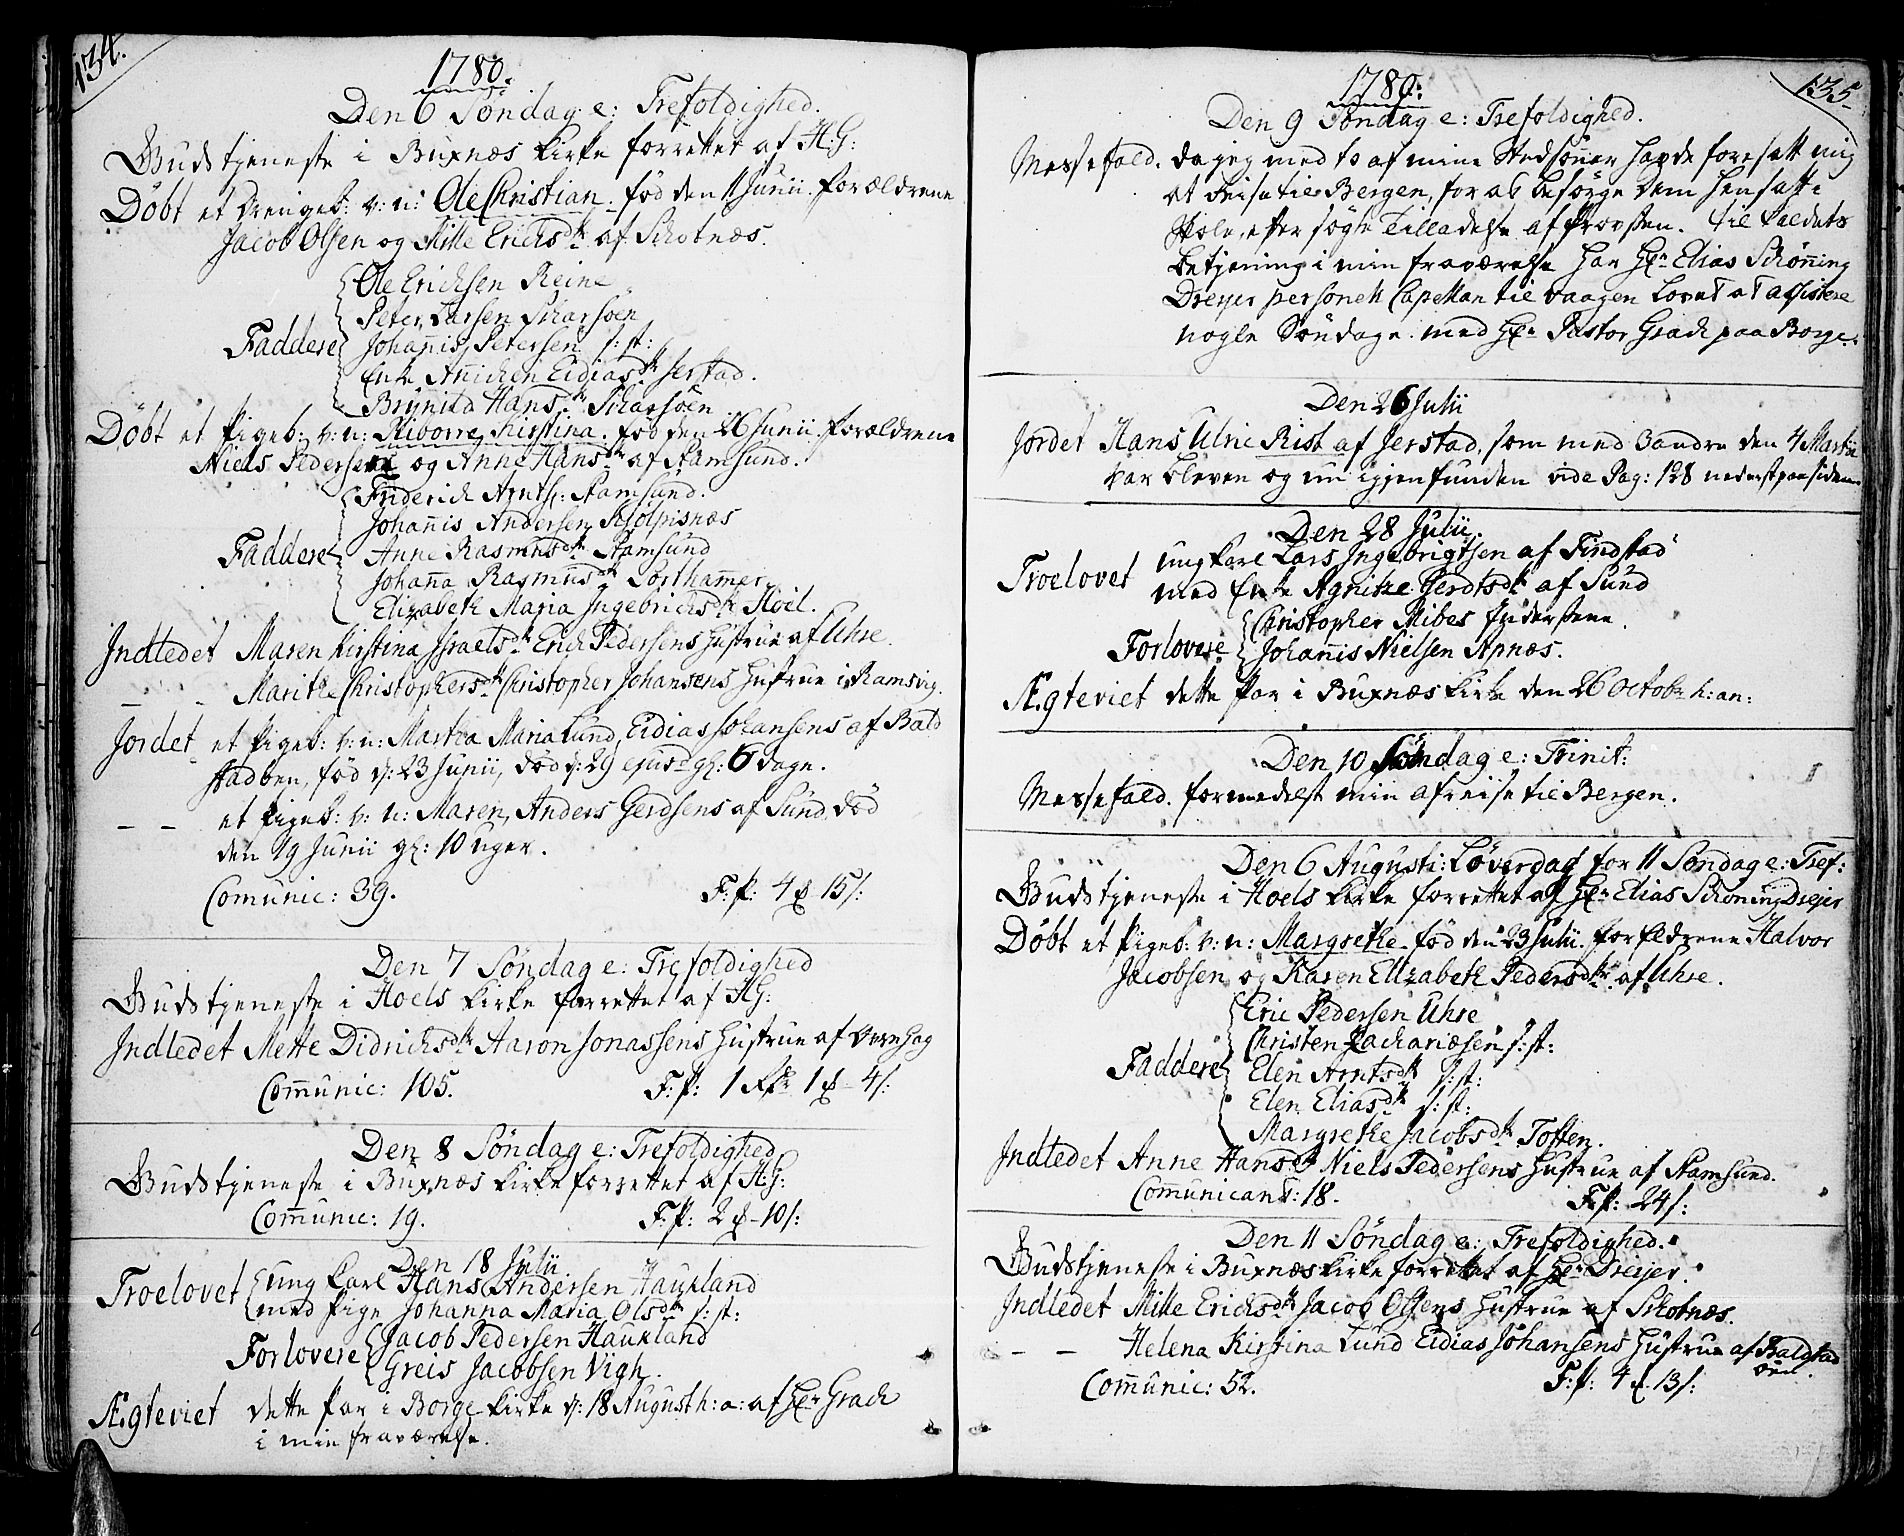 134.
1780.
Den 6 Søndag e: Trefoldighed.
Gudstjeneste i Buxnæs Kirke forrettet af H.G:
Døbt et Drengeb: v: n: Ole Christian. fød den 11 Junii. Forældrene
Jacob Olsen og Mille Erichsdtr af Schotnæs.
Ole Erichsen Reine
Peter Larsen Scharsøen
Faddere Johañis Petersen s: st:
Enke Añichen Eidiasdtr Jerstad.
Brynild Hansdtr Scharsøen
Døbt et Pigeb: v: n: Riborre Kirstina. fød den 26 Junii. Forældrene
Niels Pedersen og Anne Hansdtr af Stamsund.
Friderich Arntsn: Stamsund.
Johañis Andersen Skolpisnæs
Faddere Anne Rasmusdtr Stamsund
Johaña Rasmusdtr Sorthamer
Elizabeth Maria Ingebrichsdtr Høil.
Indledet Maren Kirstina Israelsdtr Erich Pedersens Hustrue af Uhre.
– – Marithe Christophersdtr Christopher Johansens Hustrue i Ramsvig.
Jordet et Pigeb: v: n: Martha Maria Lund, Eidias Johansens af Bald
stadøen, fød d: 23 Junii, død d: 29 ejusd gl: 6 dage.
– – et Pigeb: v: n: Maren, Anders Gerdsens af Sund, død
den 19 Junii gl: 10 uger.
Comunic: 39. F: P: 4 ℳ 15 s:
Den 7 Søndag e: Trefoldighed
Gudstjeneste i Hoels Kirke forrettet af H.G:
Indledet Mette Didrichsdtr Aaron Jonassens Hustrue af Vernhag
Comunic: 105. F: P: 1 Rdr 1 ℳ – 4 s:
Den 8 Søndag e: Trefoldighed
Gudstjeneste i Buxnæs Kirke forrettet af H:G:
Comunic: 19. F: P: 2 ℳ – 10 s:
Den 18 Julii
Troelovet ung Karl Hans Andersen Haukland
med Pige Johanna Maria Olsdtr s: st:
Forlovere Jacob Pedersen Haukland
Greis Jacobsen Vigh.
Ægteviet dette Par i Borge Kirke d: 18 August h: a: af Hr Grach
i min fraværelse.
135.
1780.
Den 9 Søndag e: Trefoldighed.
Messefald. da jeg med to af mine Stedsøner hafde foresatt mig
at Reise til Bergen, for at besørge dem hensatte
Skole, efter søgte Tilladelse af Provsten. Til Kaldets
betjening i min fraværelse har Hr Elias Schøning
Dreyer personell Capellan til Vaagen lovet at assistere
nogle Søndage. med Hr Pastor Grach paa Borge.
Den 26 Julii
Jordet Hans Ulric Rist af Jerstad, som med 3 andre den 4 Martii
var bleven og nu igjenfunden vide Pag: 128 nederst paa siden
Den 28 Julii
Troelovet ungkarl Lars Ingebrigtsen af Findstad
med Enke Agnitze Gerdtsdtr af Sund
Christopher Mibes
Forlovere Johañis Nielsen Apnæs.
Ægteviet dette Par i Buxnæs Kirke den 26 Octobr h: an:
Den 10 Søndag e: Trinit:
Messefald. formedelst min afreise til Bergen.
Den 6 Augusti: Løverdag for 11 Søndag e: Tref:
Gudstjeneste i Hoels Kirke forrettet af Hr Elias Schøning Dreyer
Døbt et Pigeb: v: n: Margrethe. fød den 23 Julii. forældrene Halvor
Jacobsen og Karen Elizabeth Pedersdtr af Uhre.
Eric Pedersen Uhre
Christen Zachariæsen s: st:
Faddere Elen Arntsdtr s: st:
Elen Eliasdtr s: st:
Margrethe Jacobsdtr Toften.
Indledet Anne Hansdtr Niels Pedersens Hustrue af Stamsund.
Comunicant: 18. F: P: 24 s:
Den 11 Søndag e: Trefoldighed.
Gudstjeneste i Buxnæs Kirke forrettet af Hr Dreyer.
Indledet Mille Erichsdtr Jacob Olsens Hustrue af Schotnæs.
– – Helena Kirstina Lund Eidias Johansens Hustrue af Baldstad
øen.
Comunic: 52. F: P: 4 ℳ 13 s: